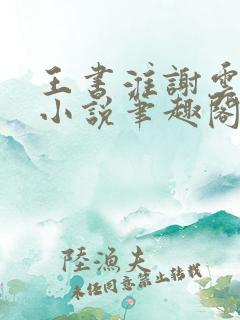 王書淮謝雲
小說筆趣閣
陸漁夫
未經同意禁止轉載